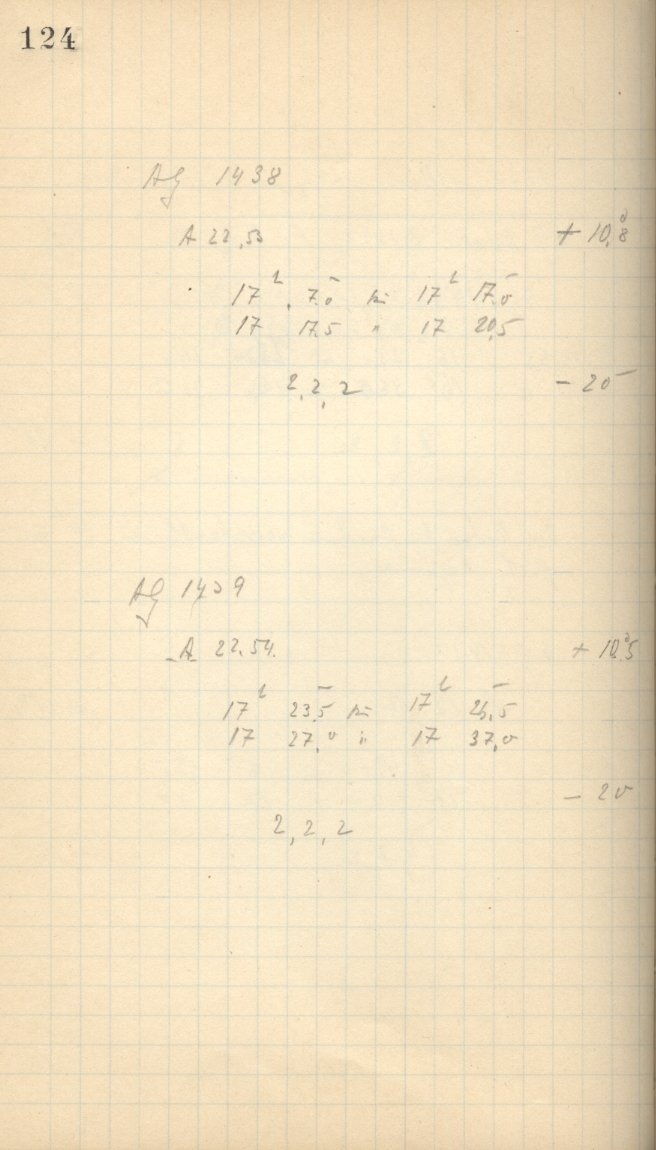 124
AG 1438
A 22,53 + 10,8
17h 7m,0 bis 17h 17m,0
17 17,5 " 17 20,5
2, 2, 2 - 20
AG 1439
A 22,54. + 10,5
17h 23m,5 bis 17h 26m,5
17 27,0 " 17 37,0
- 20
2, 2, 2